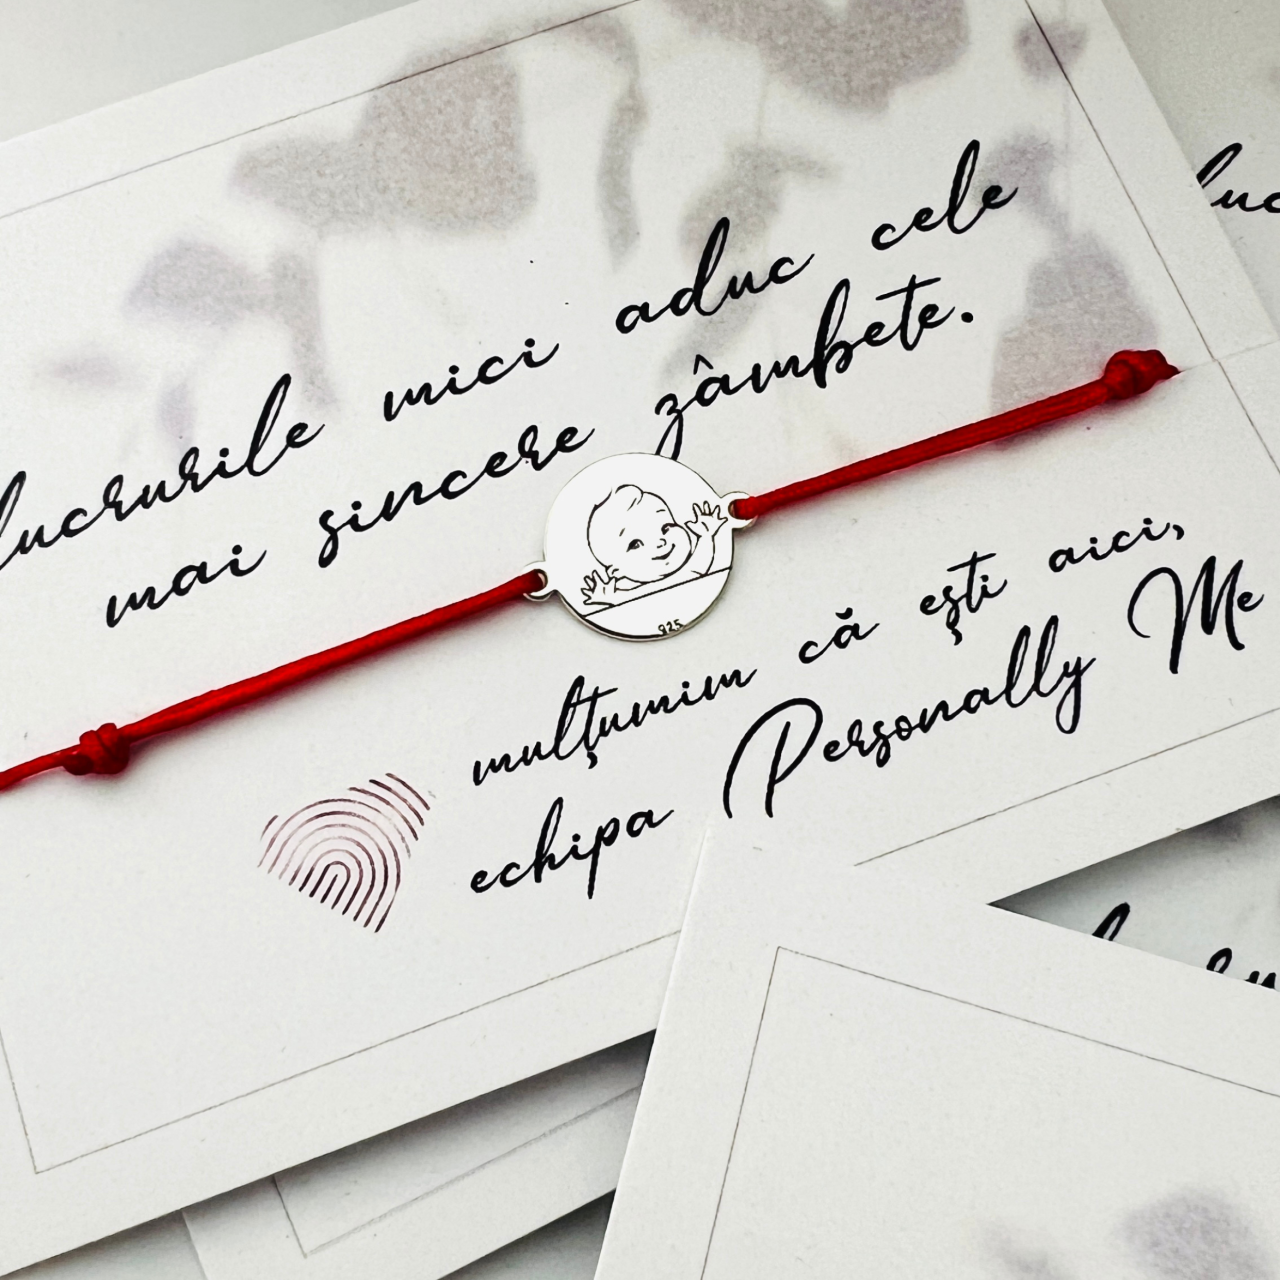 lucrurile mici aduc cele
mai sincere zâmbete.
925
mulțumim că ești aici,
echipa Personally Me
luc